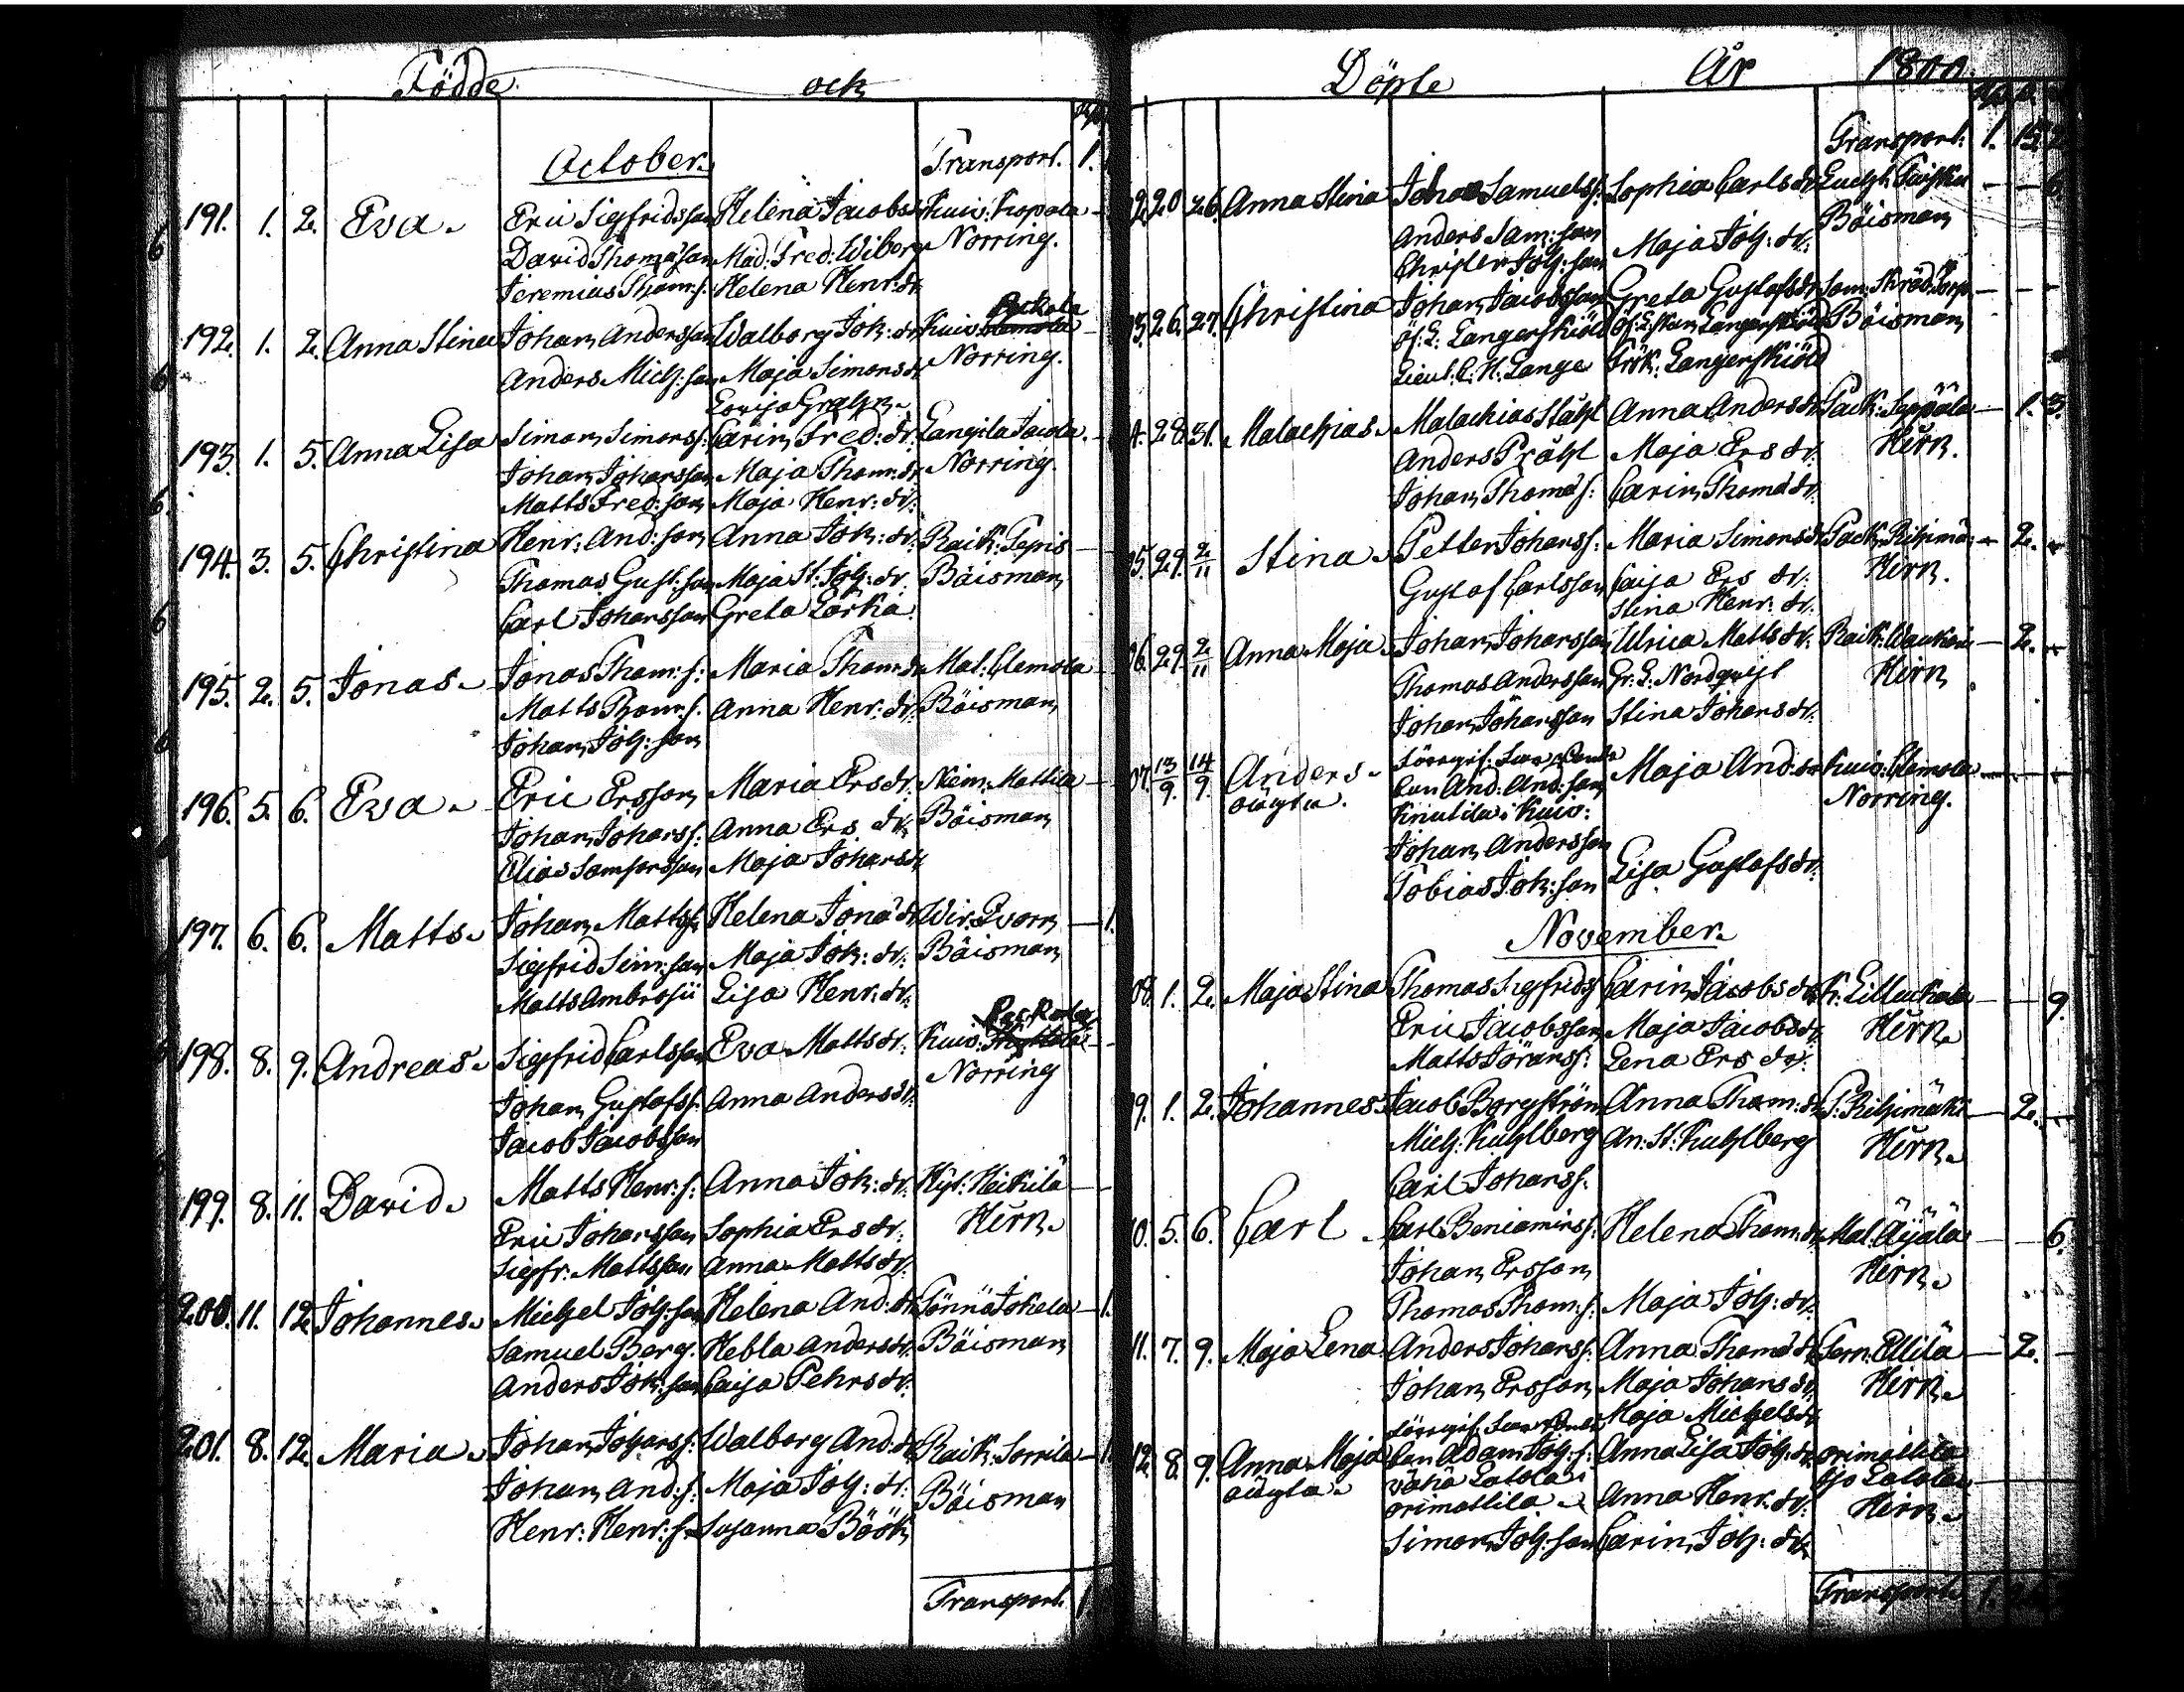 Födde ock
October. Transport. 1.
191. 1. 2. Eva. Eric Sigfridsson Helena Jacobsdr Kuiv: Kopola
David Thomasson Mad: Fred: Wiborg Norring.
Jeremias Thom: s: Helena Henr: dr
192. 1. 2. Anna Stina Johan Andersson Walborg Joh: dr Kuiv:
Anders Mich: son Maja Simonsdr Norring.
Lovisa
193. 1. 5. Anna Lisa Simon Simonss: Carin Fred: dr Langila Jacola.
Johan Johansson Maja Thom: dr Norring.
Matts Fred: son Maja Henr: dr:
194. 3. 5. Christina Henr: And: son Anna Joh: dr: Raik: Sepis
Thomas Gust: son Maja St: Joh: dr: Böisman
Carl Johansson Greta Lorka
195. 2. 5. Jonas Jonas Thom: s: Maria Thom: dr Mal: Clemola
Matts Thom: s: Anna Henr: dr: Böisman
Johan Joh: son
196. 5. 6. Eva Eric Ersson Maria Ersdr: Niem: Mattila
Johan Johanss: Anna Ers dr Böisman
Elias Samsonsson Maja Johansdr
197. 6. 6. Matts Johan Mattss: Helena Jona dr Wir: Qvarn 1.
Sigfrid Sim: son Maja Joh: dr: Böisman
Matts Ambrosii Lisa Henr: dr:
198. 8. 9. Andreas Sigfrid Carlsson Eva Mattsdr: Kuiv:
Norring
Johan Gustafss: Anna Andersdr:
Jacob Jacobsson
199. 8. 11. David Matts Henr: s: Anna Joh: dr: Hyt: Heikilä
Eric Johansson Sophia Ersdr: Hirn
Sigfr: Mattsson Anna Mattsdr:
200. 11. 12. Johannes Michel Joh: son Helena And: dr Tönnö Jokela 1.
Samuel Berg. Hebla Andersdr: Böisman
Anders Joh: son Caisa Pehrsdr:
201. 8. 12. Maria Johan Johanss: Walborg And: dr Raik: Sorrila 1.
Johan And: s: Maja Joh: dr: Böisman
Henr: Henr: s: Susanna Böök
Transport. 1
Döpte År 1800.
Transport. 1. 15.
20 26. Anna Stina Johan Samuelss: Sophia Carlsdr 6.
Anders Sam: son Maja Joh: dr: Böisman
Christer Joh: son
26. 27. Christina Johan Jacobsson Greta Gustafsdr
Öf: L: Langenskiöld Langenskiöld Böisman
Lieut: C. H. Lange Frök: Langenskiöld
4. 28. 31. Malachias Malachias Ståhl Anna Andersdr Pack: Seppälä 1. 3.
Anders Pråhl Maja Ersdr: Hirn.
Johan Thomas: Carin Thomædr:
5. 29. 2/11 Stina Petter Johanss: Maria Simonsdr Pack: Rihimä: 2.
Gustaf Carlsson Caisa Ers dr: Hirn.
Stina Henr: dr:
06. 29. 2/11 Anna Maja Johan Johansson Ulrica Mattsdr: Raik: 2.
Thomas Andersson Gr: L: Nordqvist Hirn
Johan Johansson Stina Johansdr:
07. 13/9. 14/9. Anders oägta.
And: And: son Maja And: dr Kuiv: Clemola
Knutila i Kuiv: Norring.
Johan Andersson
Tobias Joh: son Lisa Gustafsdr:
November.
08. 1. 2. Maja Stina Thomas Sigfridss Carin Jacobsdr 9.
Eric Jacobsson Maja Jacobsdr Hirn
Matts Göranss: Lena Ers dr:
09. 1. 2. Johannes Jacob Borgström Anna Thom: dr P: Rihimäki 2.
Mich: Kuhlberg An: St: Kuhlberg Hirn
Carl Johanss.
10. 5. 6. Carl Carl Beniaminss: Helena Thom: dr Mal: Äijälä 6.
Johan Ersson Hirn
Thomas Thom: s: Maja Joh: dr:
11. 7. 9. Maja Lena Anders Johanss: Anna Thomædr Tern: Ellilä 2.
Johan Ersson Maja Johansdr Hirn
Maja Michelsdr
12. 8. 9. Anna Maja Adam Joh: s: Anna Lisa Joh: dr Orimattila
oägta. vähä Latola i Iso Latola
Orimattila Anna Henr: dr: Hirn
Simon Joh: son Carin Joh: dr
Transport. 1.